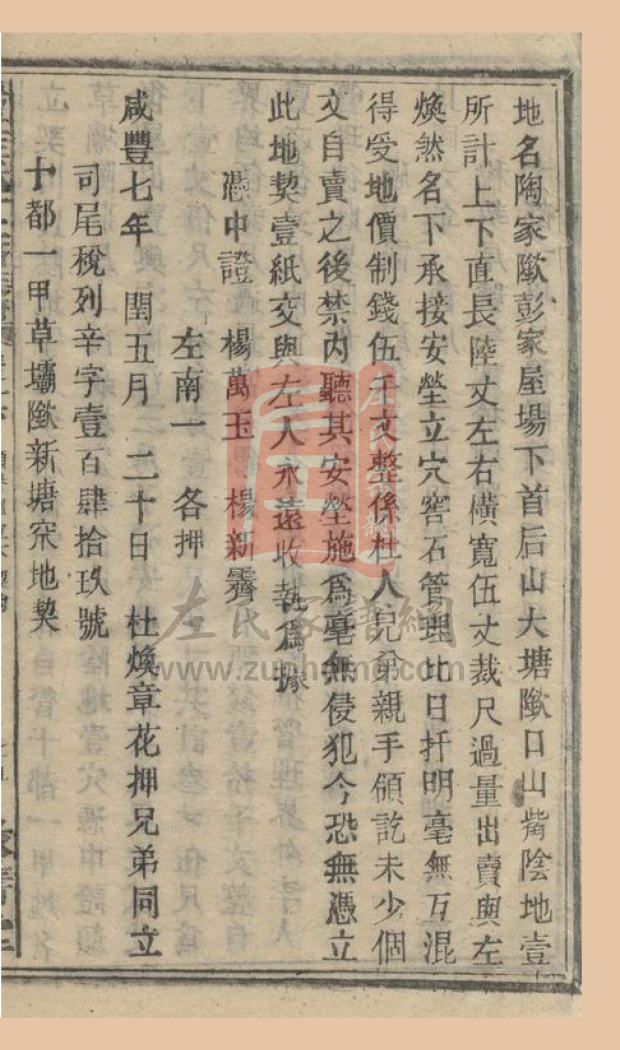 地名陶家歘彭家屋場下首后山大塘歘口山觜陰地壹
所計上下直長陸丈左右橫寬伍丈裁尺過量出賣與左
煥然名下承接安塋立穴窖石管理比日扦明毫無互混
得受地價制錢伍千文整係杜人兄弟親手領訖未少個
文自賣之後禁內聽其安塋施為毫無侵犯今恐無憑立
此地契壹紙交與左人永遠收執為據
憑中證 楊萬玉 楊新霽
左南一 各押
咸豐七年 閏五月 二十日 杜煥章花押兄弟同立
司尾稅列辛字壹百肆拾玖號
十都一甲草壩歘新塘寀地契
左氏家譜網
www.zuphome.com